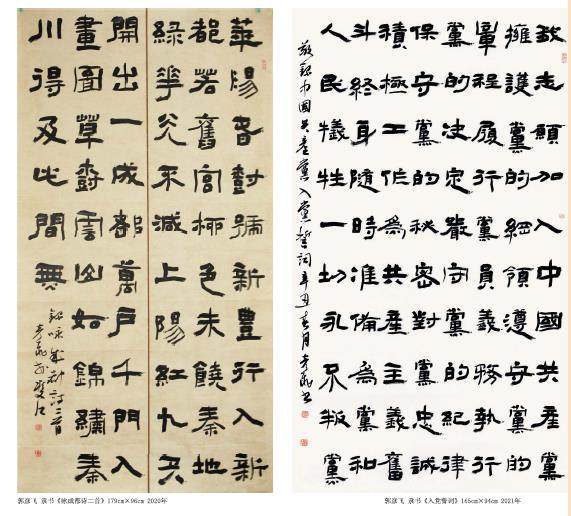 華陽春樹號新豐行入新
都若舊宮柳色未饒秦地
綠花光不減上陽紅九天
開出一成都萬户千門入
畫圖草樹雲山如錦繡秦
川得及此間無
錄咏成都詩二首
彥飛
郭彦飞 隶书《咏成都诗二首》179cm×96cm 2020年
我志願加入中國共產黨
擁護黨的綱領遵守黨的
章程履行黨員義務執行
黨的決定嚴守黨的紀律
保守黨的秘密對黨忠誠
積極工作爲共產主義奮
斗終身隨時准備爲黨和
人民犧牲一切永不叛黨
敬錄中國共產黨入黨誓詞辛丑春月彥飛書
郭彦飞 隶书《入党誓词》165cm×94cm 2021年